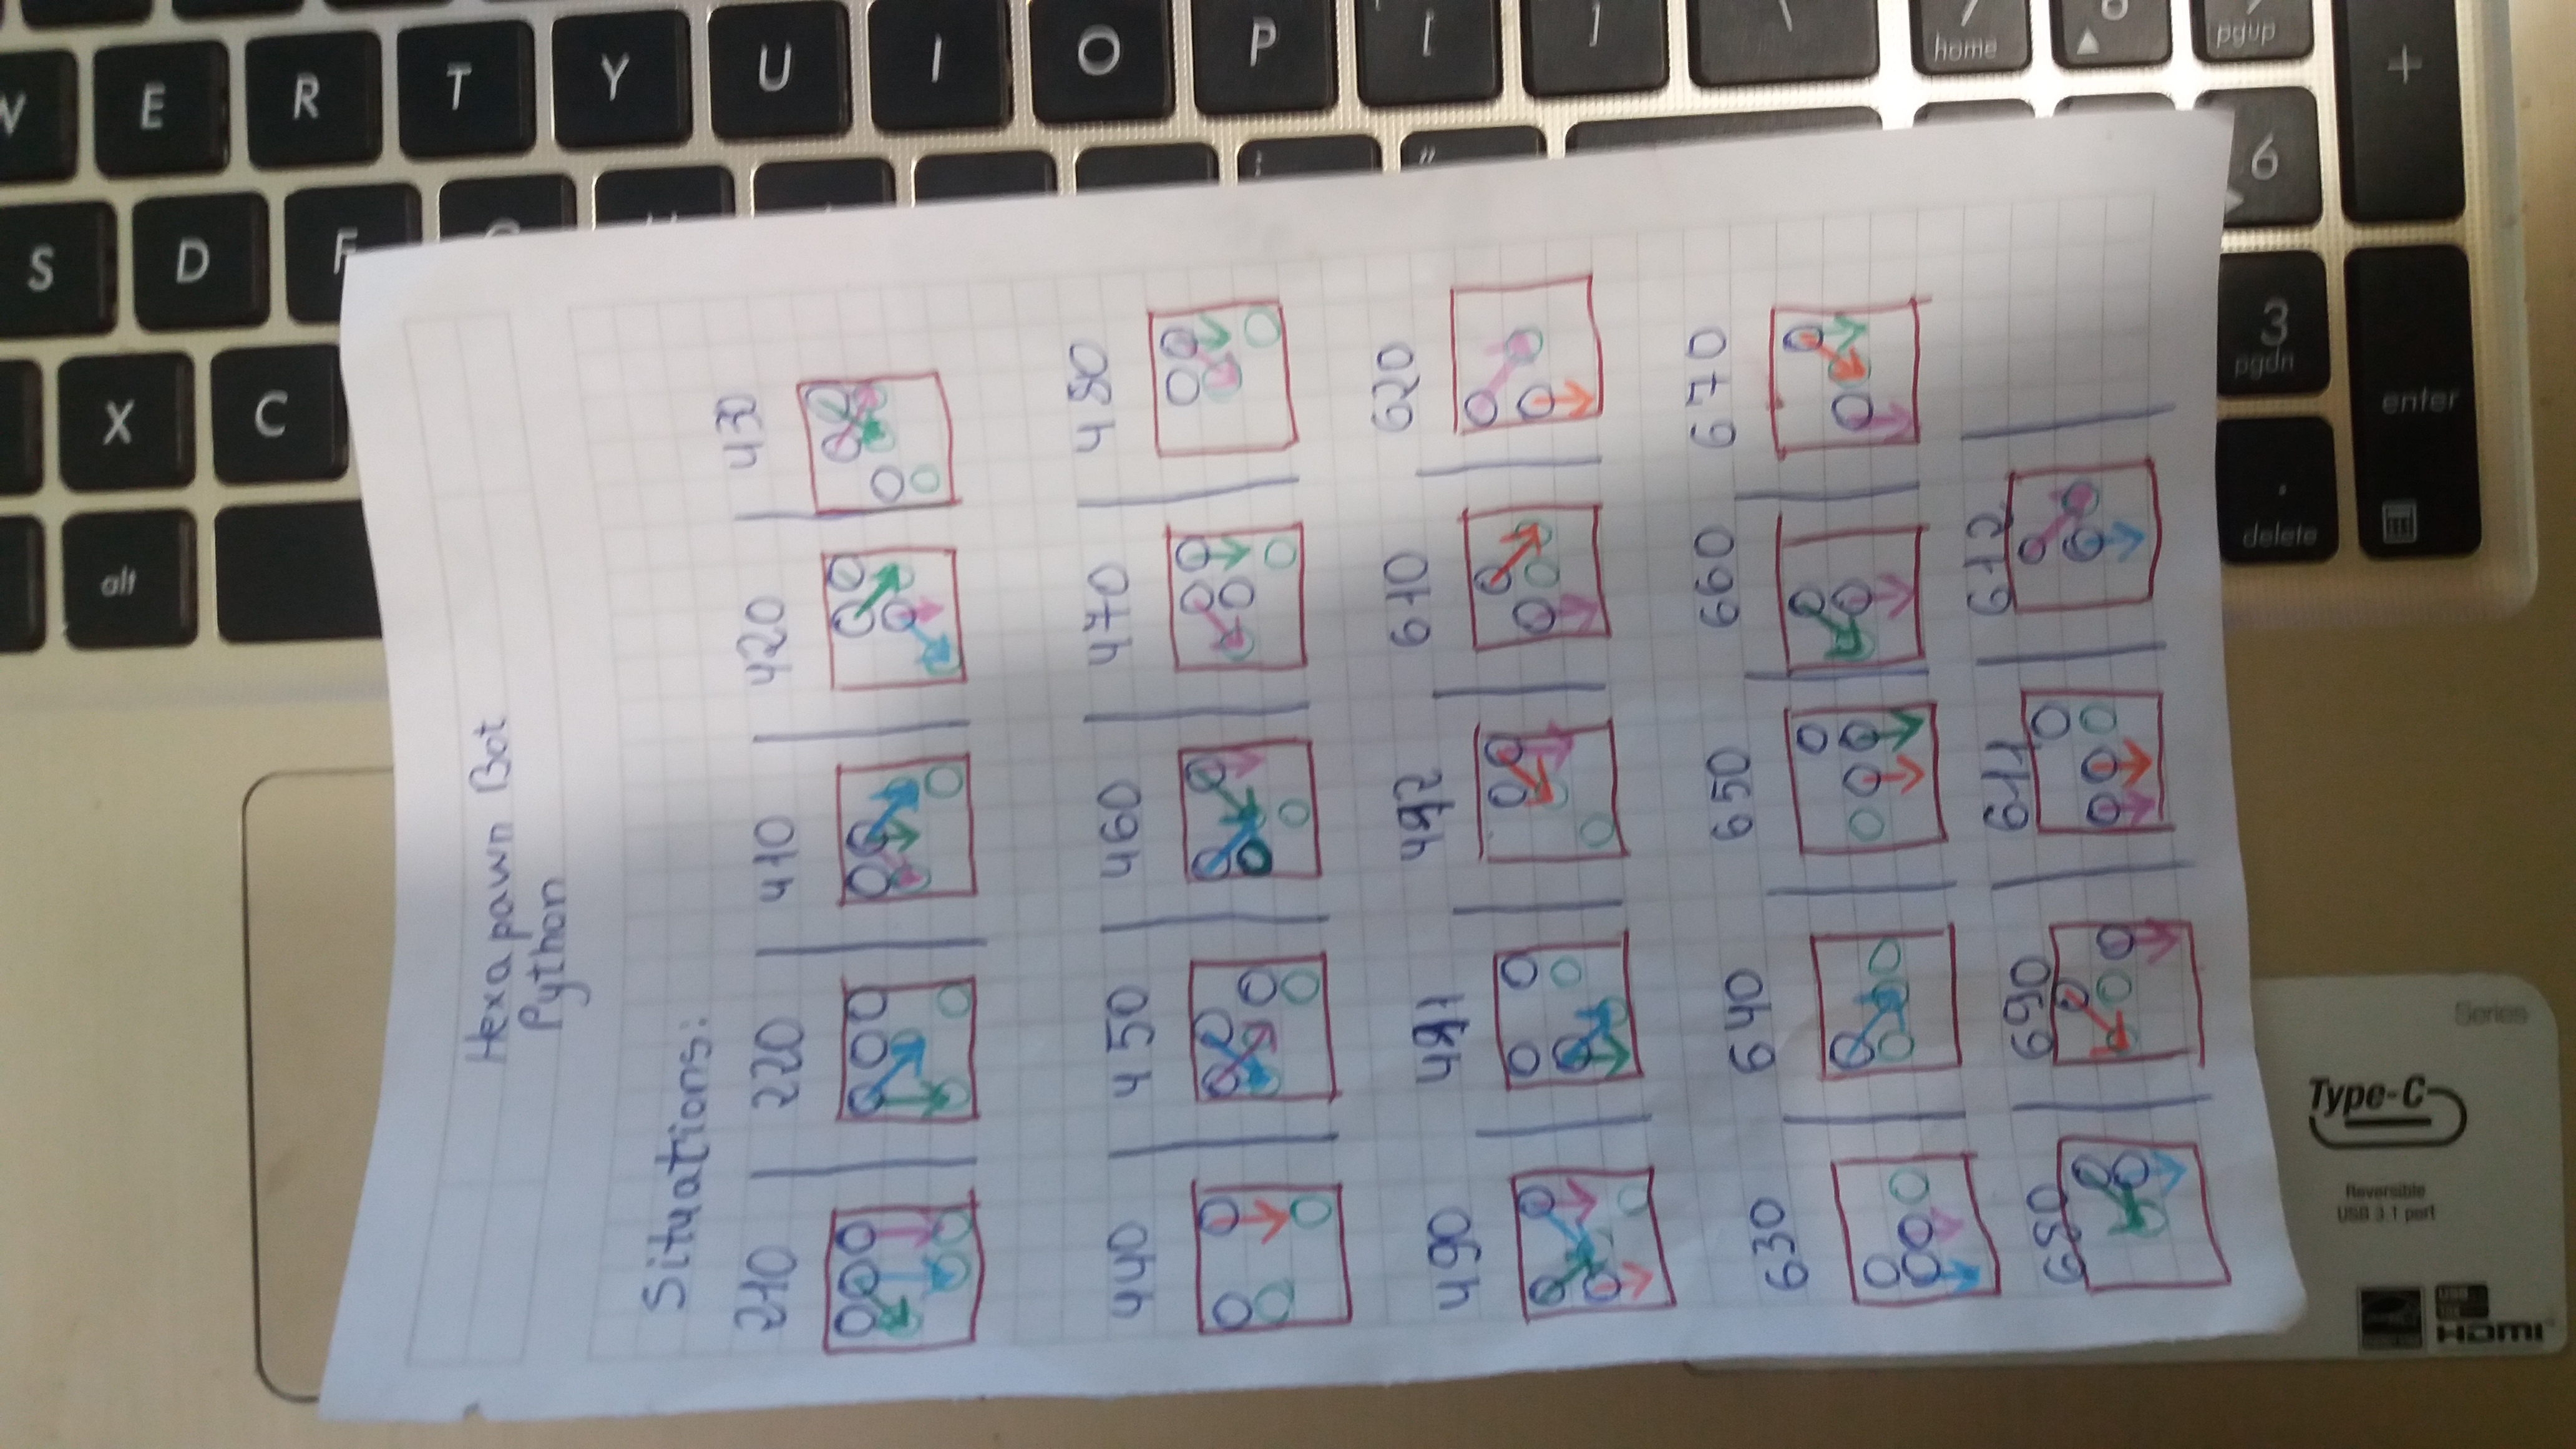 Hexapawn Bot
Python
Situations:
210 220 410 420 430
440 450 460 470 480
490 491 492 610 620
630 640 650 660 670
680 690 611 612
S
alt X D E
C F R
T
Y
U
I
O
P
home
pgup
delete 3 pgdn 6
enter +
Type-C
Reversible
USB 3.1 port
HDMI
Series